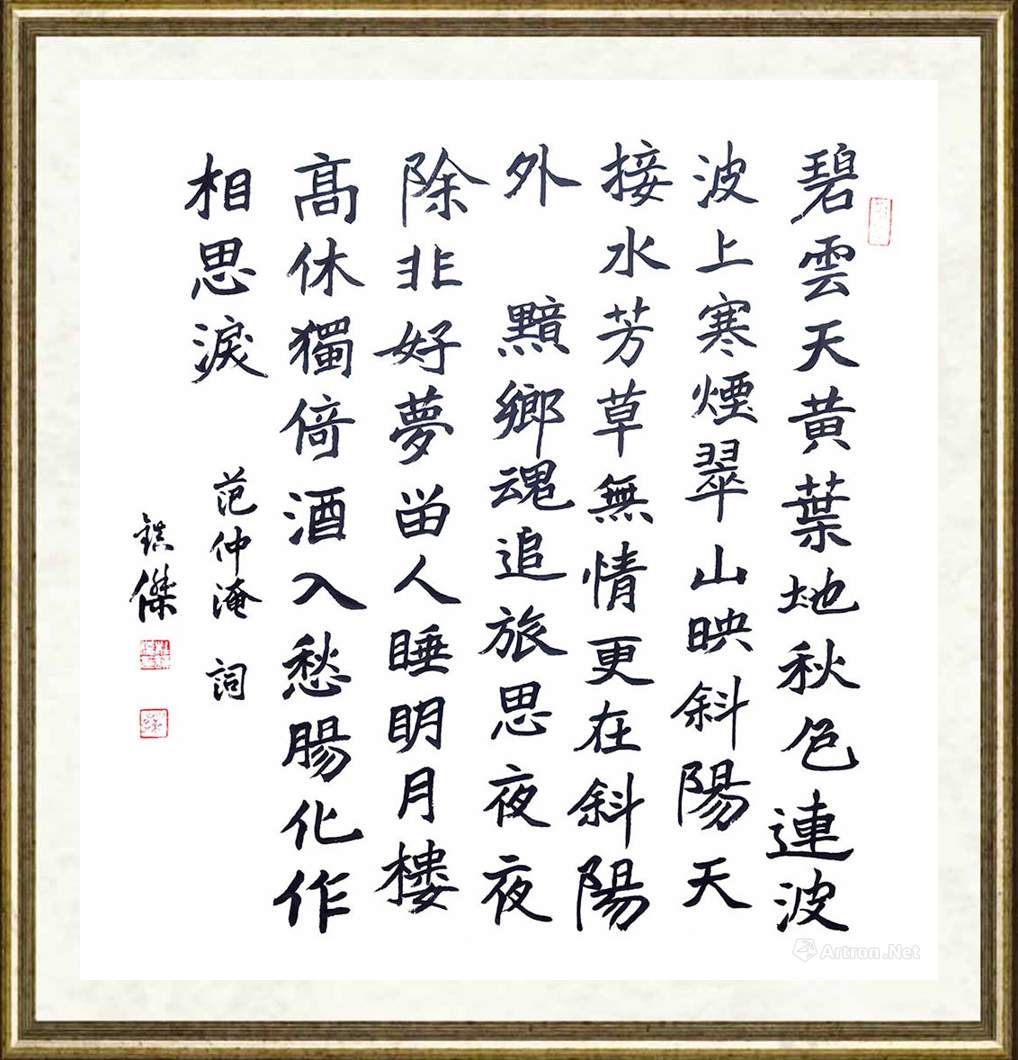 碧雲天黃葉地秋色連波
波上寒煙翠山映斜陽天
接水芳草無情更在斜陽
外 黯鄉魂追旅思夜夜
除非好夢畄人睡明月樓
高休獨倚酒入愁腸化作
相思淚
范仲淹 詞
鎮傑
Artron.Net